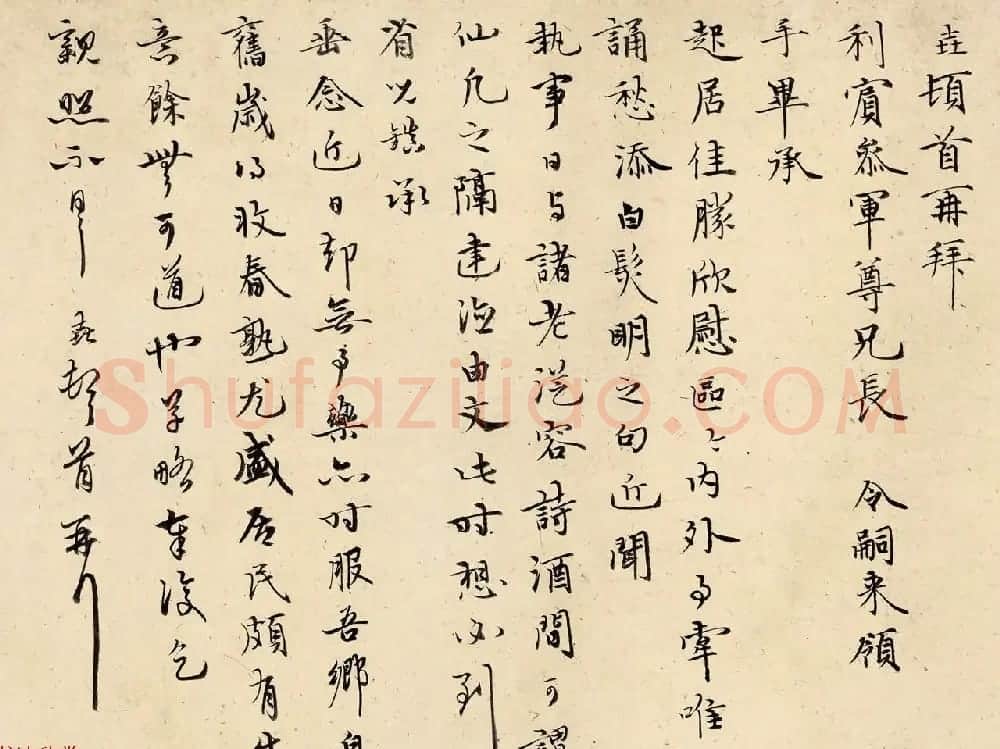 垚頓首再拜
利賓叅軍尊兄長 令嗣来領
手畢承
起居佳勝欣慰區々内外事寧唯
誦愁添白髮明之句近聞
執事日与諸老從容詩酒間可謂
仙凡之隔建德由文此時想必到
省以鎮承
垂念近日却無事藥亦时服吾鄉
舊歲得收春熟尤盛居民頗有
意餘無可道草略奉復乞
親照不宣 垚頓首再拜
Shufaziliao.COM